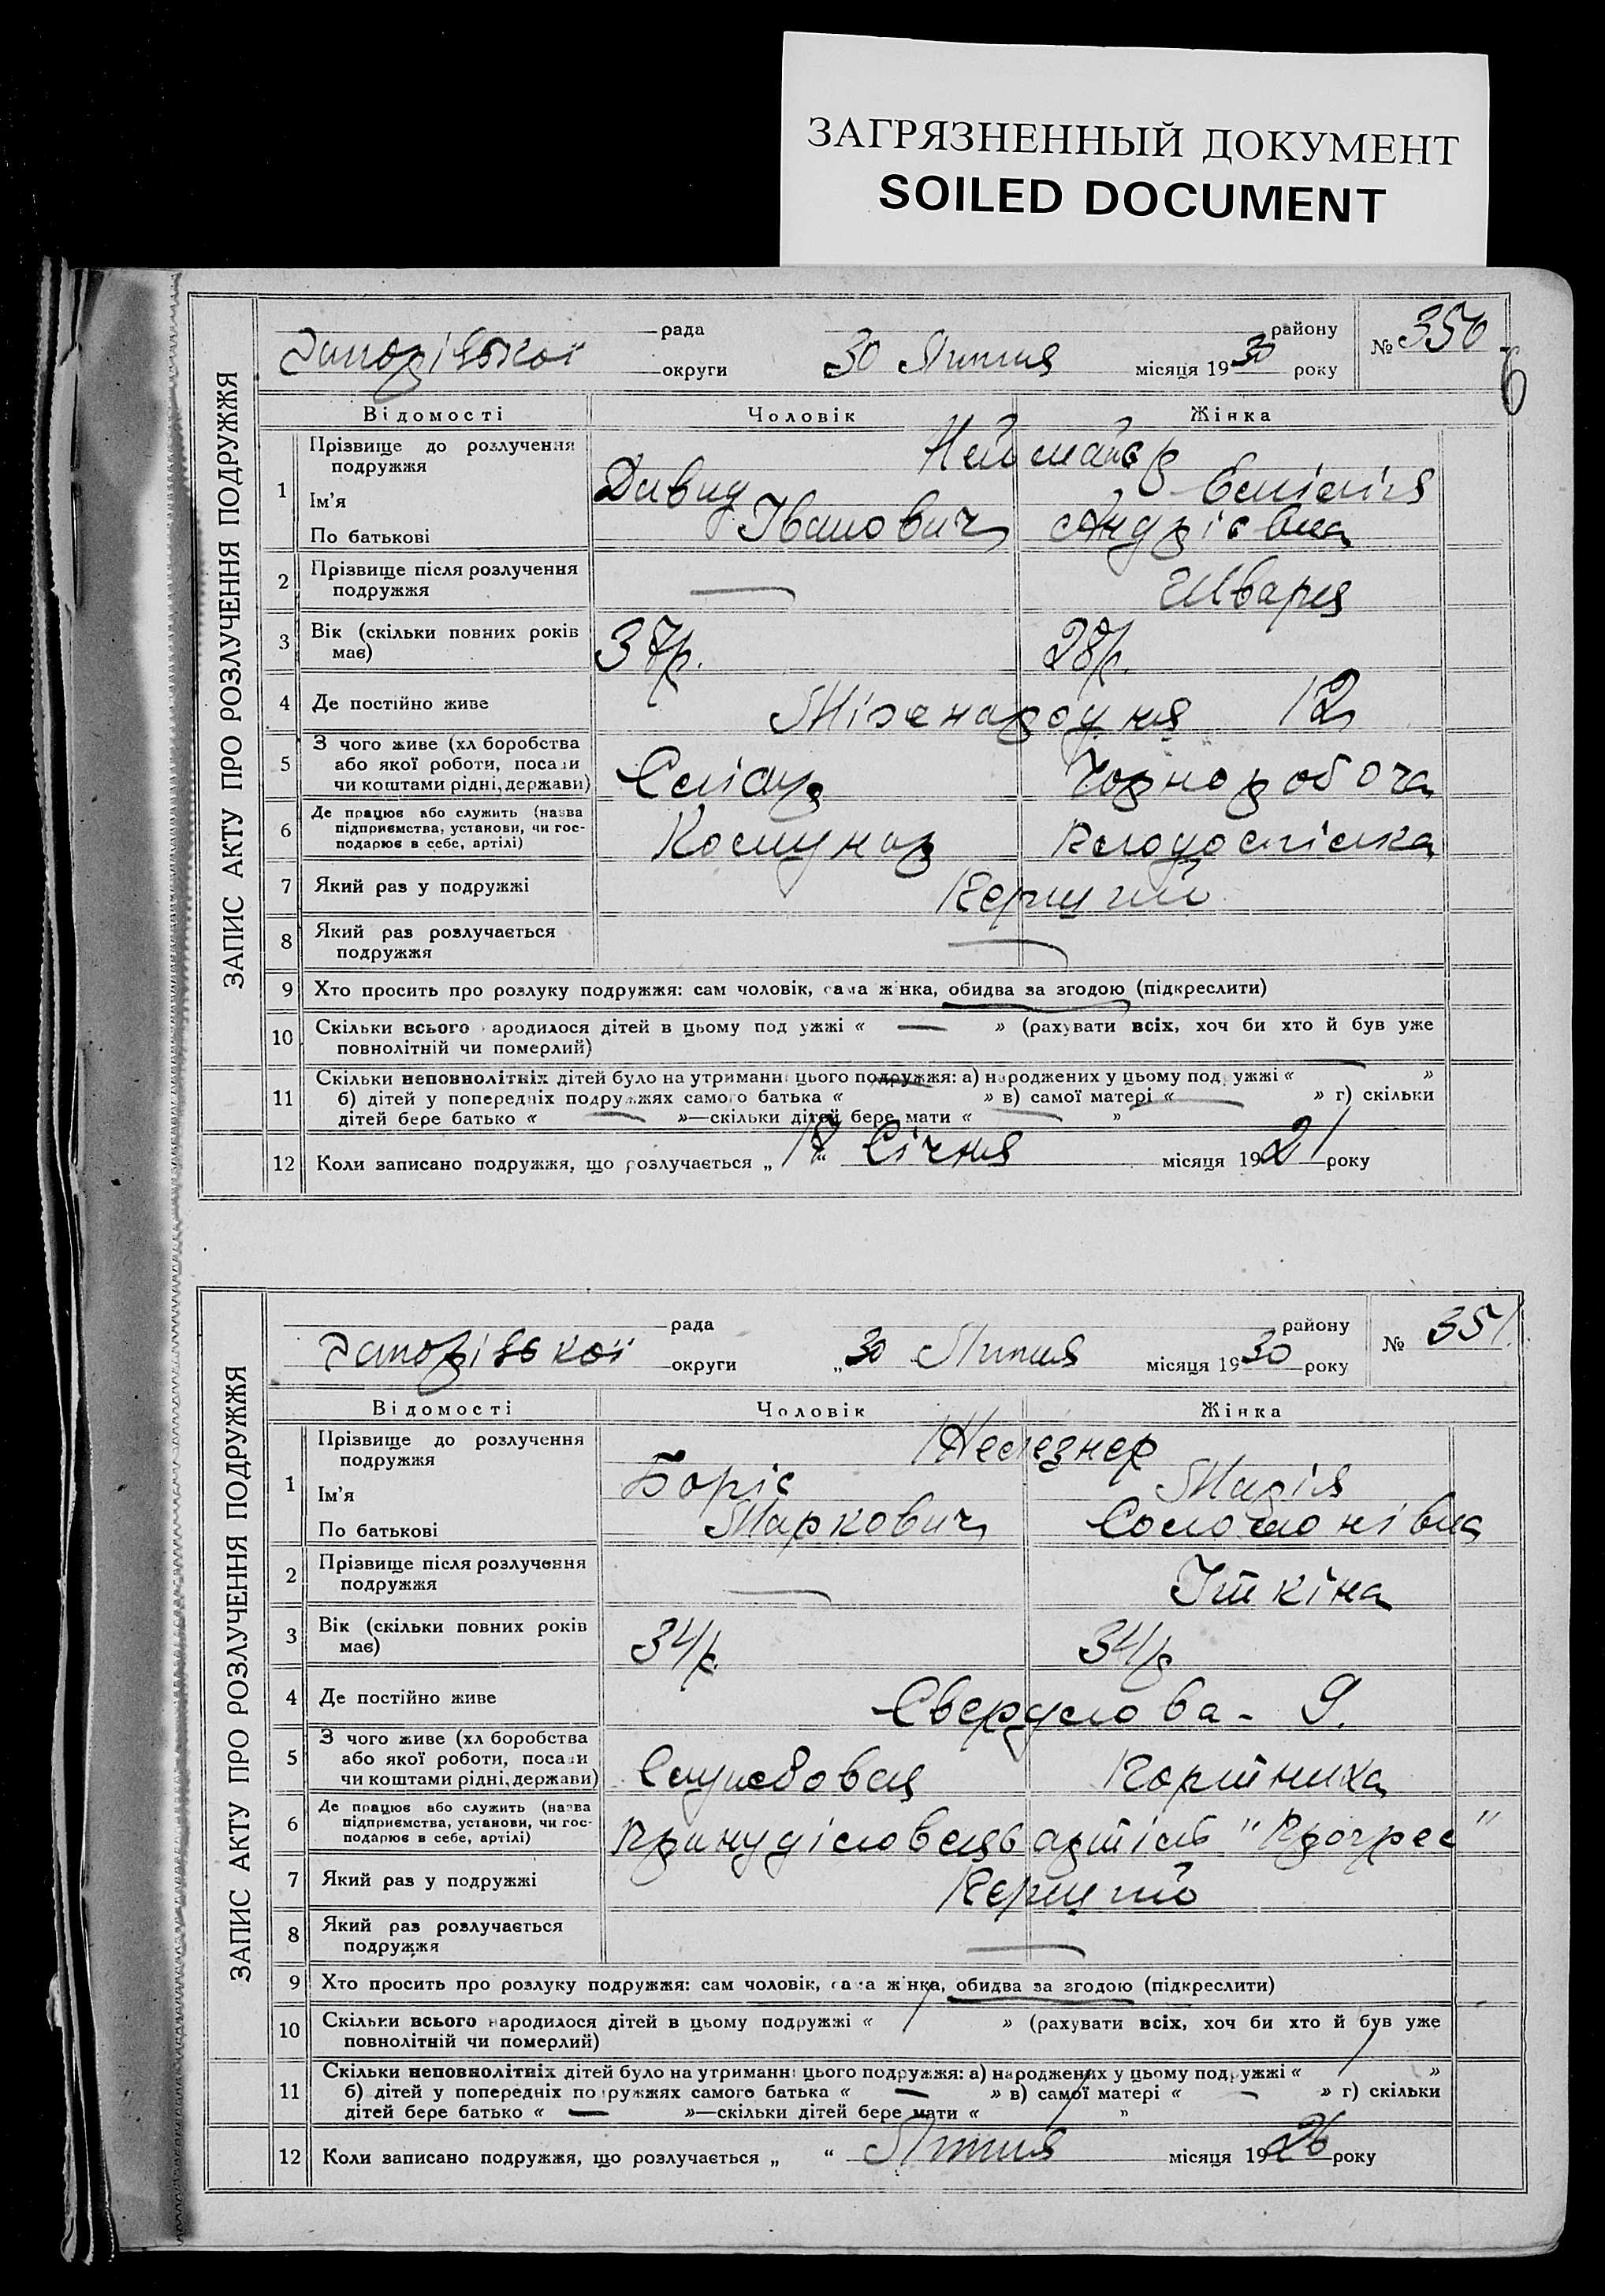 ЗАГРЯЗНЕННЫЙ ДОКУМЕНТ
SOILED DOCUMENT
ЗАПИС АКТУ ПРО РОЗЛУЧЕННЯ ПОДРУЖЖЯ
рада району № 350
6
Запорізської округи 30 Липня місяця 1930 року
Відомості Чоловік Жінка
1 Прізвище до розлучення подружжя Неймаєр
Ім'я Давид Емілія
По батькові Іванович Андріївна
2 Прізвище після розлучення подружжя — Шварц
3 Вік (скільки повних років має) 37р. 28р.
4 Де постійно живе Міжнародня 12
5 З чого живе (хліборобства
або якої роботи, посади
чи коштами рідні, держави) Слюсар Чорноробоча
6 Де працює або служить (назва
підприємства, установи, чи гос-
подарює в себе, артілі) Комунар
7 Який раз у подружжі Перший
8 Який раз розлучається
подружжя —
9 Хто просить про розлуку подружжя: сам чоловік, сама жінка, обидва за згодою (підкреслити)
10 Скільки всього народилося дітей в цьому подружжі « — » (рахувати всіх, хоч би хто й був уже
повнолітній чи померлий)
11 Скільки неповнолітніх дітей було на утриманні цього подружжя: а) народжених у цьому подружжі « — »
б) дітей у попередніх подружжях самого батька « — » в) самої матері « — » г) скільки
дітей бере батько « — »—скільки дітей бере мати « — »
12 Коли записано подружжя, що розлучається „ 17 “ Січня місяця 1921 року
ЗАПИС АКТУ ПРО РОЗЛУЧЕННЯ ПОДРУЖЖЯ
рада району № 351
Запорізської округи „30 Липня місяця 1930 року
Відомості Чоловік Жінка
1 Прізвище до розлучення
подружжя
Ім'я Боріс Марія
По батькові Маркович Соломонівна
2 Прізвище після розлучення
подружжя — Іткіна
3 Вік (скільки повних років
має) 34/р. 34/р
4 Де постійно живе Свердлова - 9.
5 З чого живе (хліборобства
або якої роботи, посади
чи коштами рідні, держави) Службовец Портниха
6 Де працює або служить (назва
підприємства, установи, чи гос-
подарює в себе, артілі) артіль "Прогрес"
7 Який раз у подружжі Перший
8 Який раз розлучається
подружжя —
9 Хто просить про розлуку подружжя: сам чоловік, сама жінка, обидва за згодою (підкреслити)
10 Скільки всього народилося дітей в цьому подружжі « / » (рахувати всіх, хоч би хто й був уже
повнолітній чи померлий)
11 Скільки неповнолітніх дітей було на утриманні цього подружжя: а) народжених у цьому подружжі « / »
б) дітей у попередніх подружжях самого батька « — » в) самої матері « — » г) скільки
дітей бере батько « — »—скільки дітей бере мати « / »
12 Коли записано подружжя, що розлучається „ “ Липня місяця 1926 року